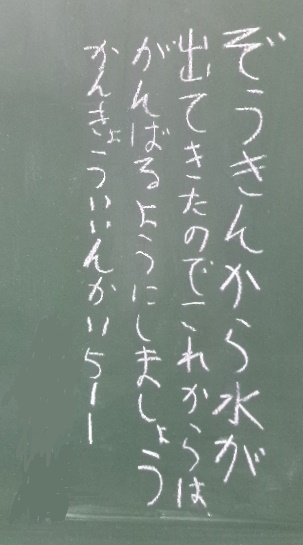 ぞうきんから水が
出てきたのでこれからは、
がんばるようにしましょう
かんきょういいんかいらーー